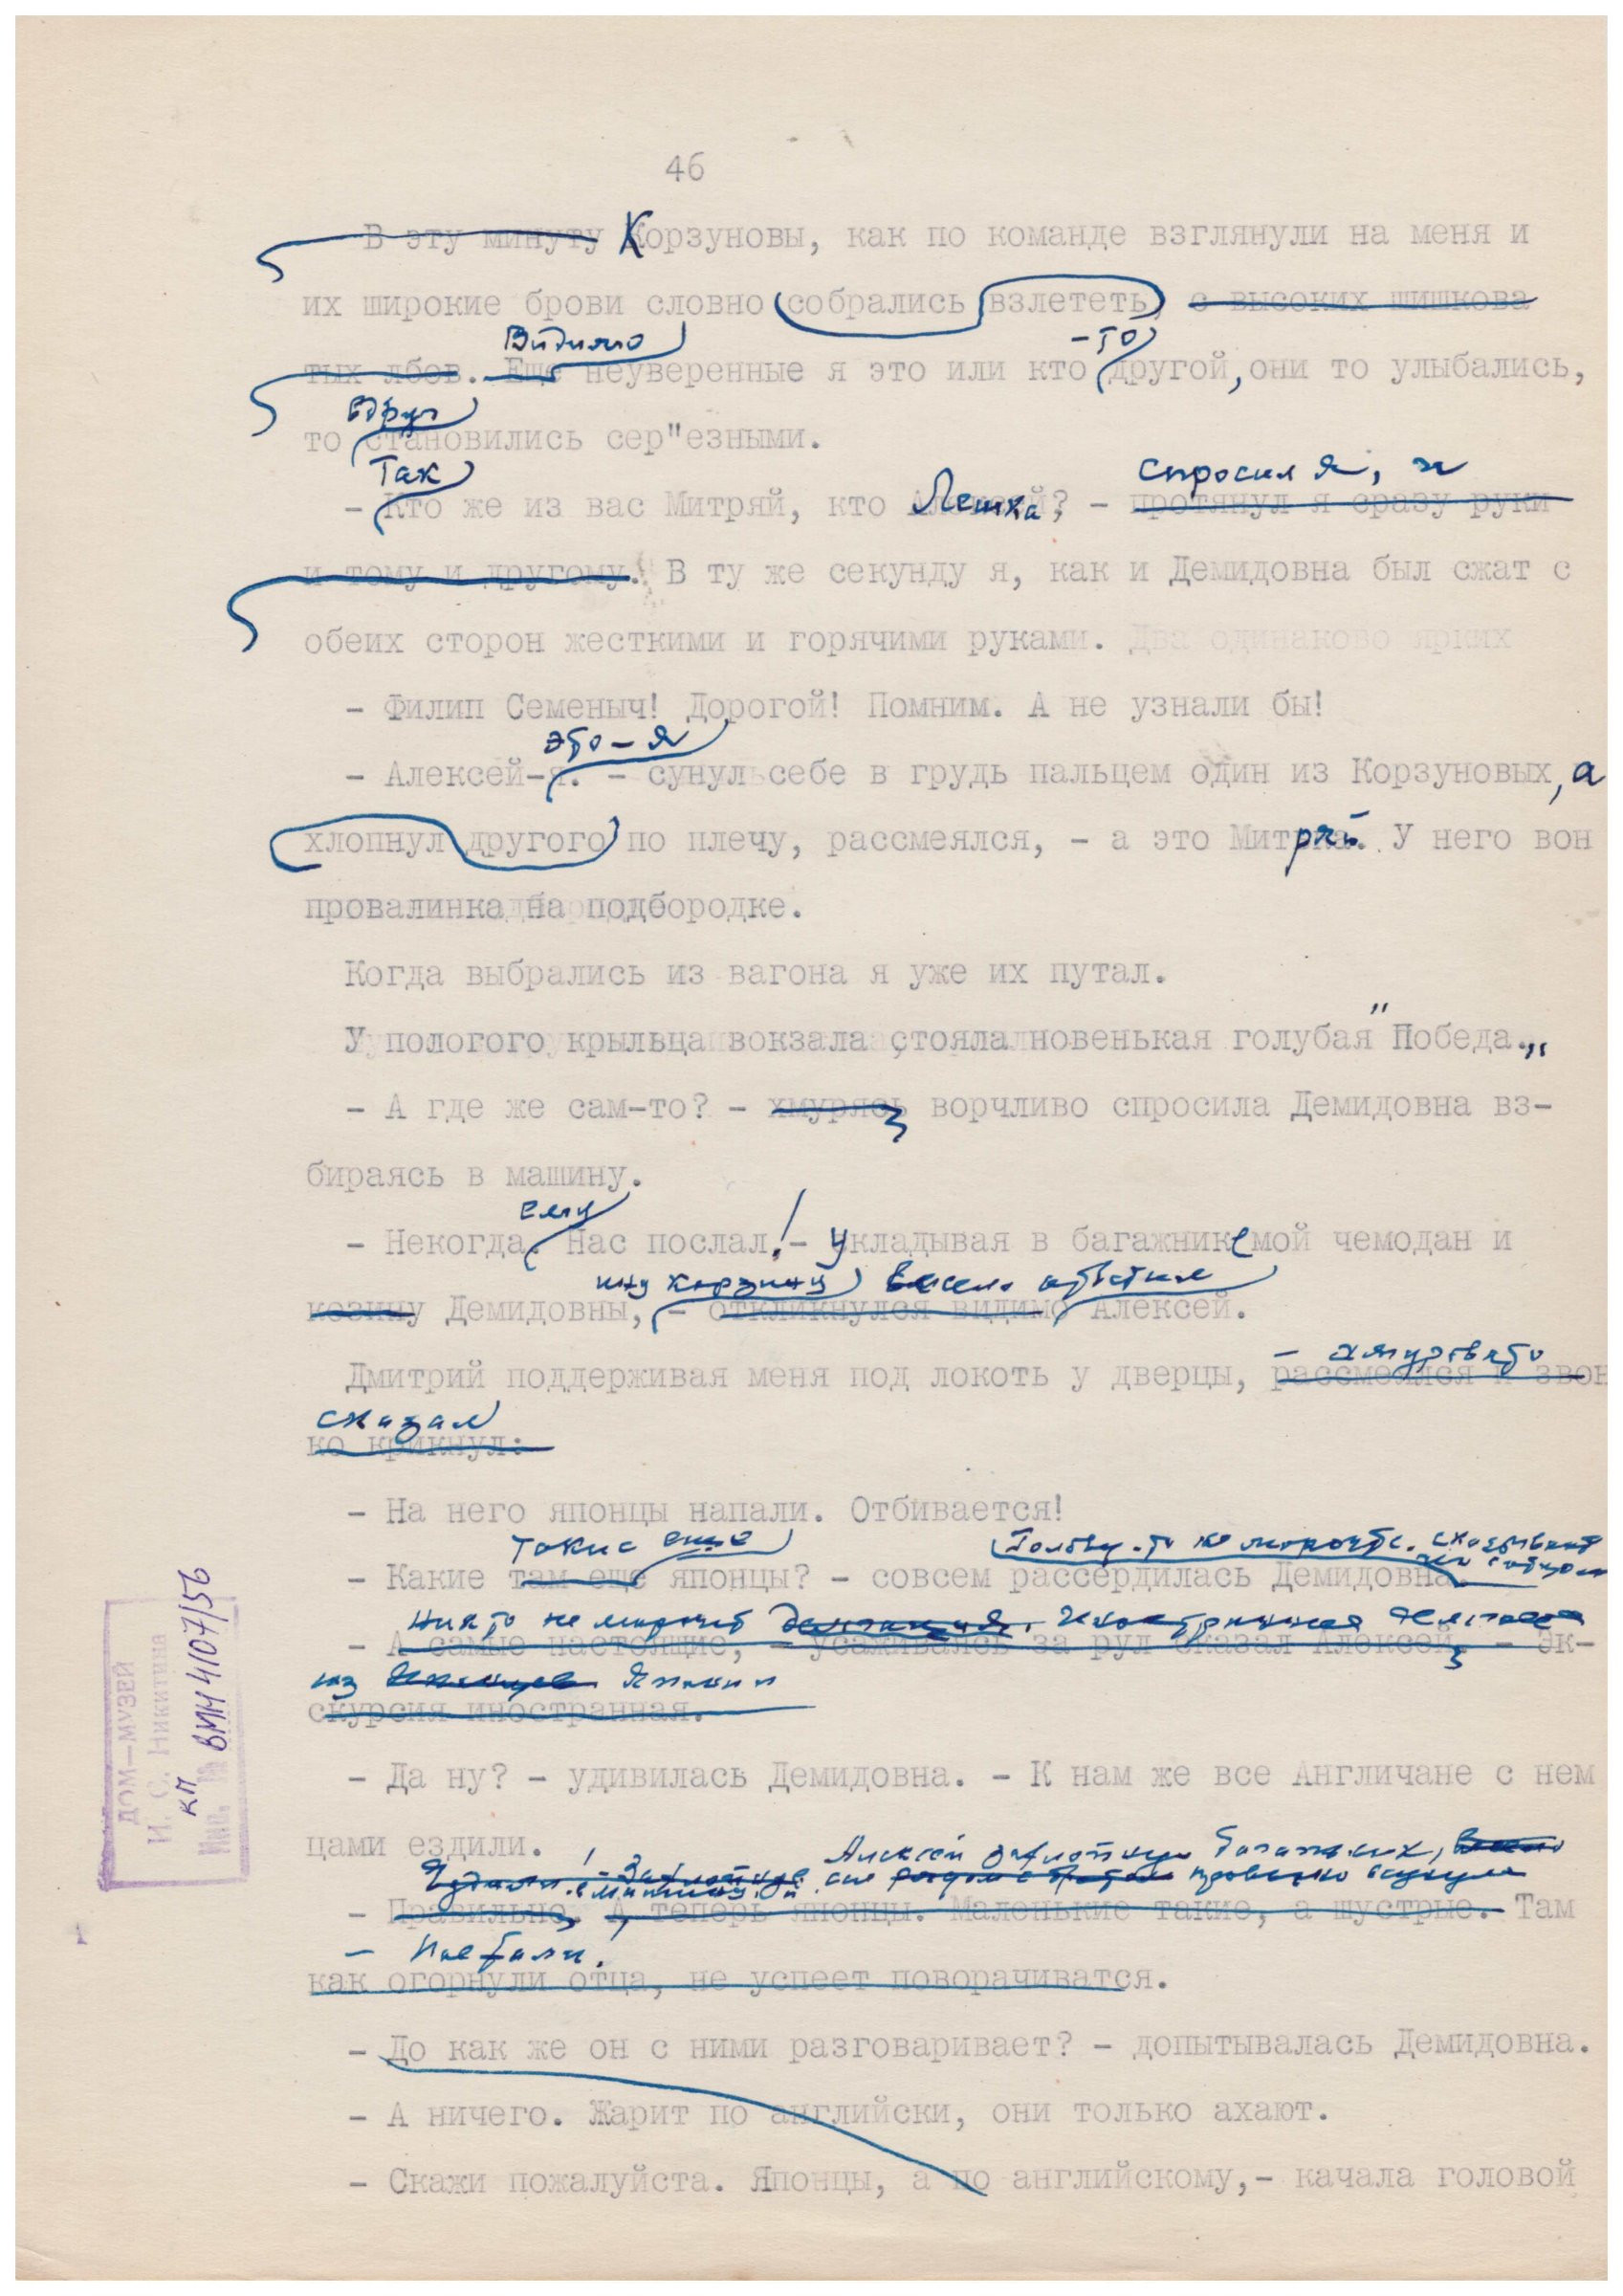 46
В эту минуту Корзуновы, как по команде взглянули на меня и
их широкие брови словно собрались взлететь, с высоких шишкова
Видимо -то
тых лбов. Еще неуверенные я это или кто другой, они то улыбались,
вдруг
то становились сер"езными.
Так спросил я, и
- Кто же из вас Митряй, кто Лешка? - протянул я сразу руки
и тому и другому. В ту же секунду я, как и Демидовна был сжат с
обеих сторон жесткими и горячими руками. Два одинаково ярких
- Филип Семеныч! Дорогой! Помним. А не узнали бы!
это - я
- Алексей-я. - сунул себе в грудь пальцем один из Корзуновых, а
хлопнул другого по плечу, рассмеялся, - а это Митряй. У него вон
провалинка на подбородке.
Когда выбрались из вагона я уже их путал.
У пологого крыльца вокзала стояла новенькая голубая "Победа."
- А где же сам-то? - хмурясь ворчливо спросила Демидовна вз-
бираясь в машину.
ему
- Некогда. Нас послал! - укладывая в багажнике мой чемодан и
корзину весело ответил
козину Демидовны, - откликнулся видимо Алексей.
- хмуровато
Дмитрий поддерживая меня под локоть у дверцы, рассмеялся и звон
сказал
ко крикнул:
- На него японцы напали. Отбивается!
Такие еще Голову-то не морочьте.
- Какие там еще японцы? - совсем рассердилась Демидовна.
Никто не морочит
- А самые настоящие, - усаживаясь за рул сказал Алексей, - Эк-
из Японии
скурсия иностранная.
- Да ну? - удивилась Демидовна. - К нам же все Англичане с нем
цами ездили.
Алексей захлопнул багажник,
- Правильно. А теперь японцы. Маленькие такие, а шустрые. Там
-
как огорнули отца, не успеет поворачиватся.
- До как же он с ними разговаривает? - допытывалась Демидовна.
- А ничего. Жарит по английски, они только ахают.
- Скажи пожалуйста. Японцы, а по английскому,- качала головой
ДОМ-МУЗЕЙ
И. С. Никитина
КП ВЛМ 4107/56
Инв. №